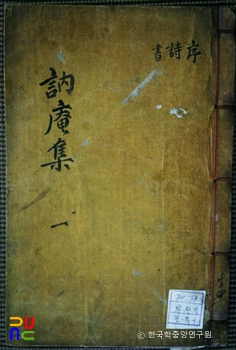 序
詩
書
訥庵集
一
ⓒ 한국학중앙연구원.